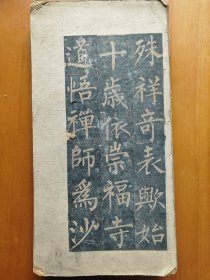 殊祥奇表歟始
十歲依崇福寺
道悟禪師為沙